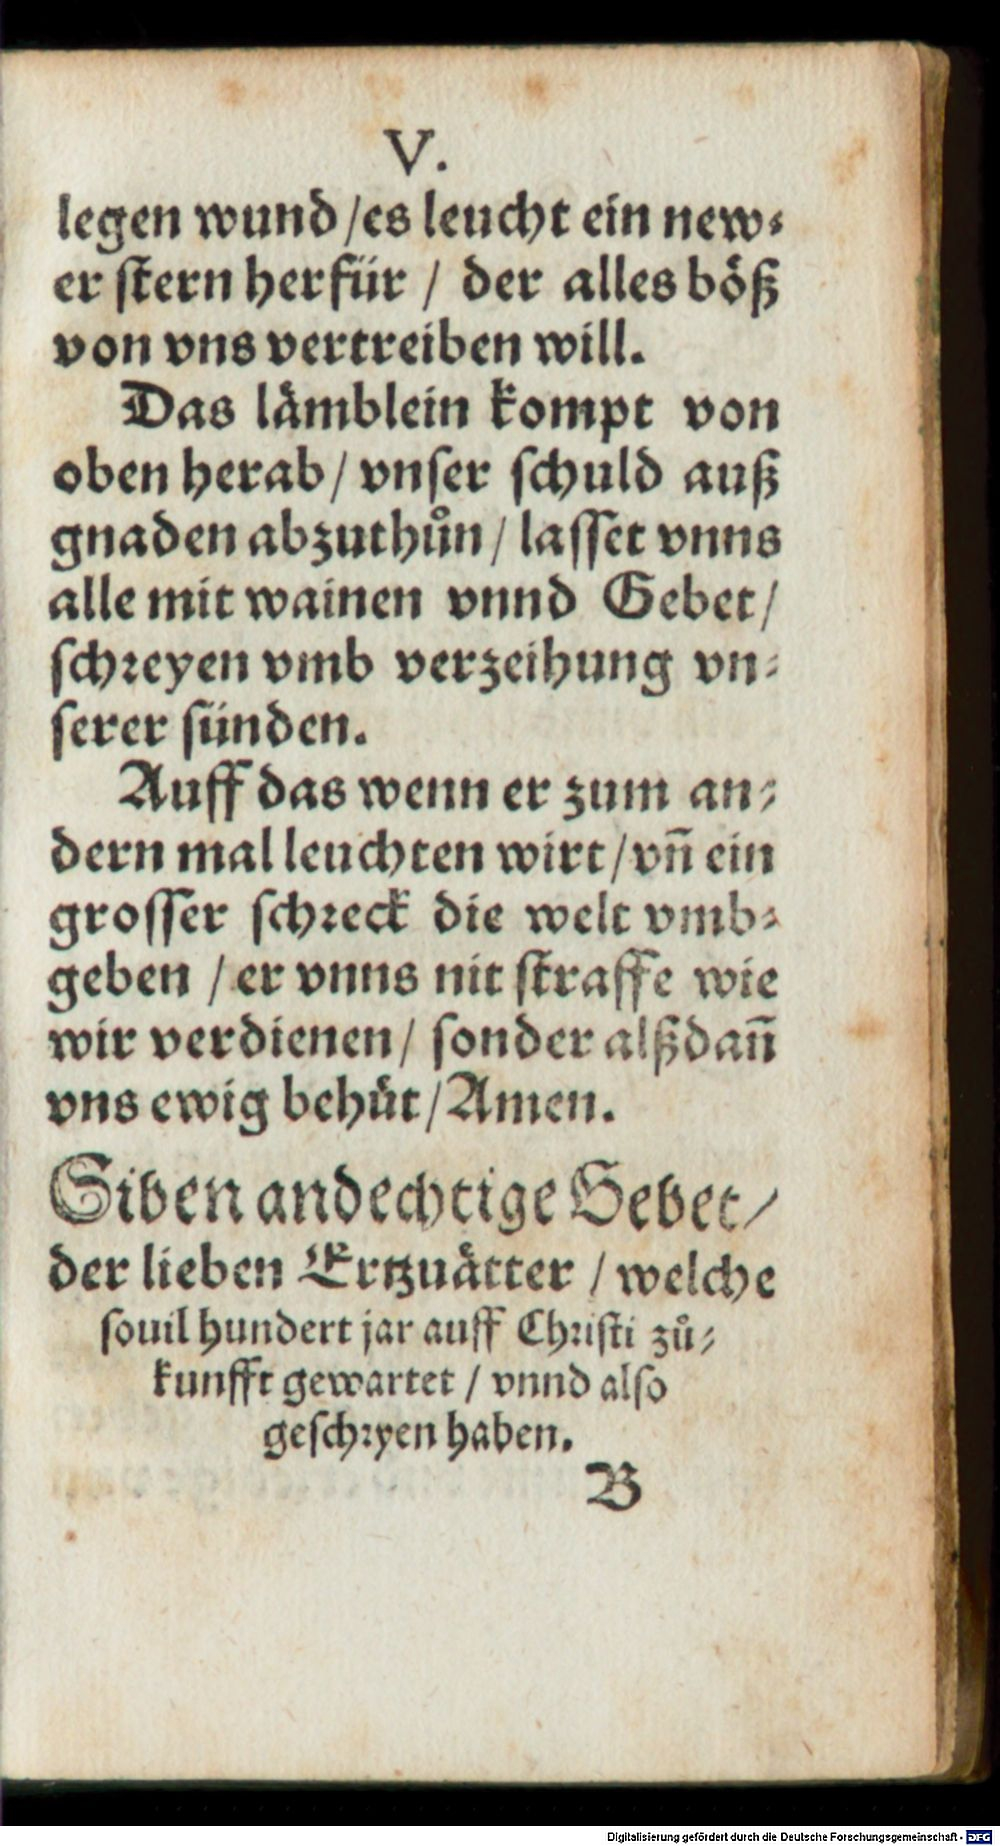 V.
legen wund / es leucht ein new⸗
er stern herfür / der alles böß
von vns vertreiben will.
Das lämblein kompt von
oben herab / vnser schuld auß
gnaden abzuthůn / lasset vnns
alle mit wainen vnnd Gebet /
schreyen vmb verzeihung vn⸗
serer sünden.
Auff das wenn er zum an⸗
dern mal leuchten wirt / vñ ein
grosser schreck die welt vmb⸗
geben / er vnns nit straffe wie
wir verdienen / sonder alßdañ
vns ewig behüt / Amen.
Siben andechtige Gebet /
der lieben Ertzuätter / welche
souil hundert jar auff Christi zů⸗
kunfft gewartet / vnnd also
geschryen haben.
B
Digitalisierung gefördert durch die Deutsche Forschungsgemeinschaft - DFG